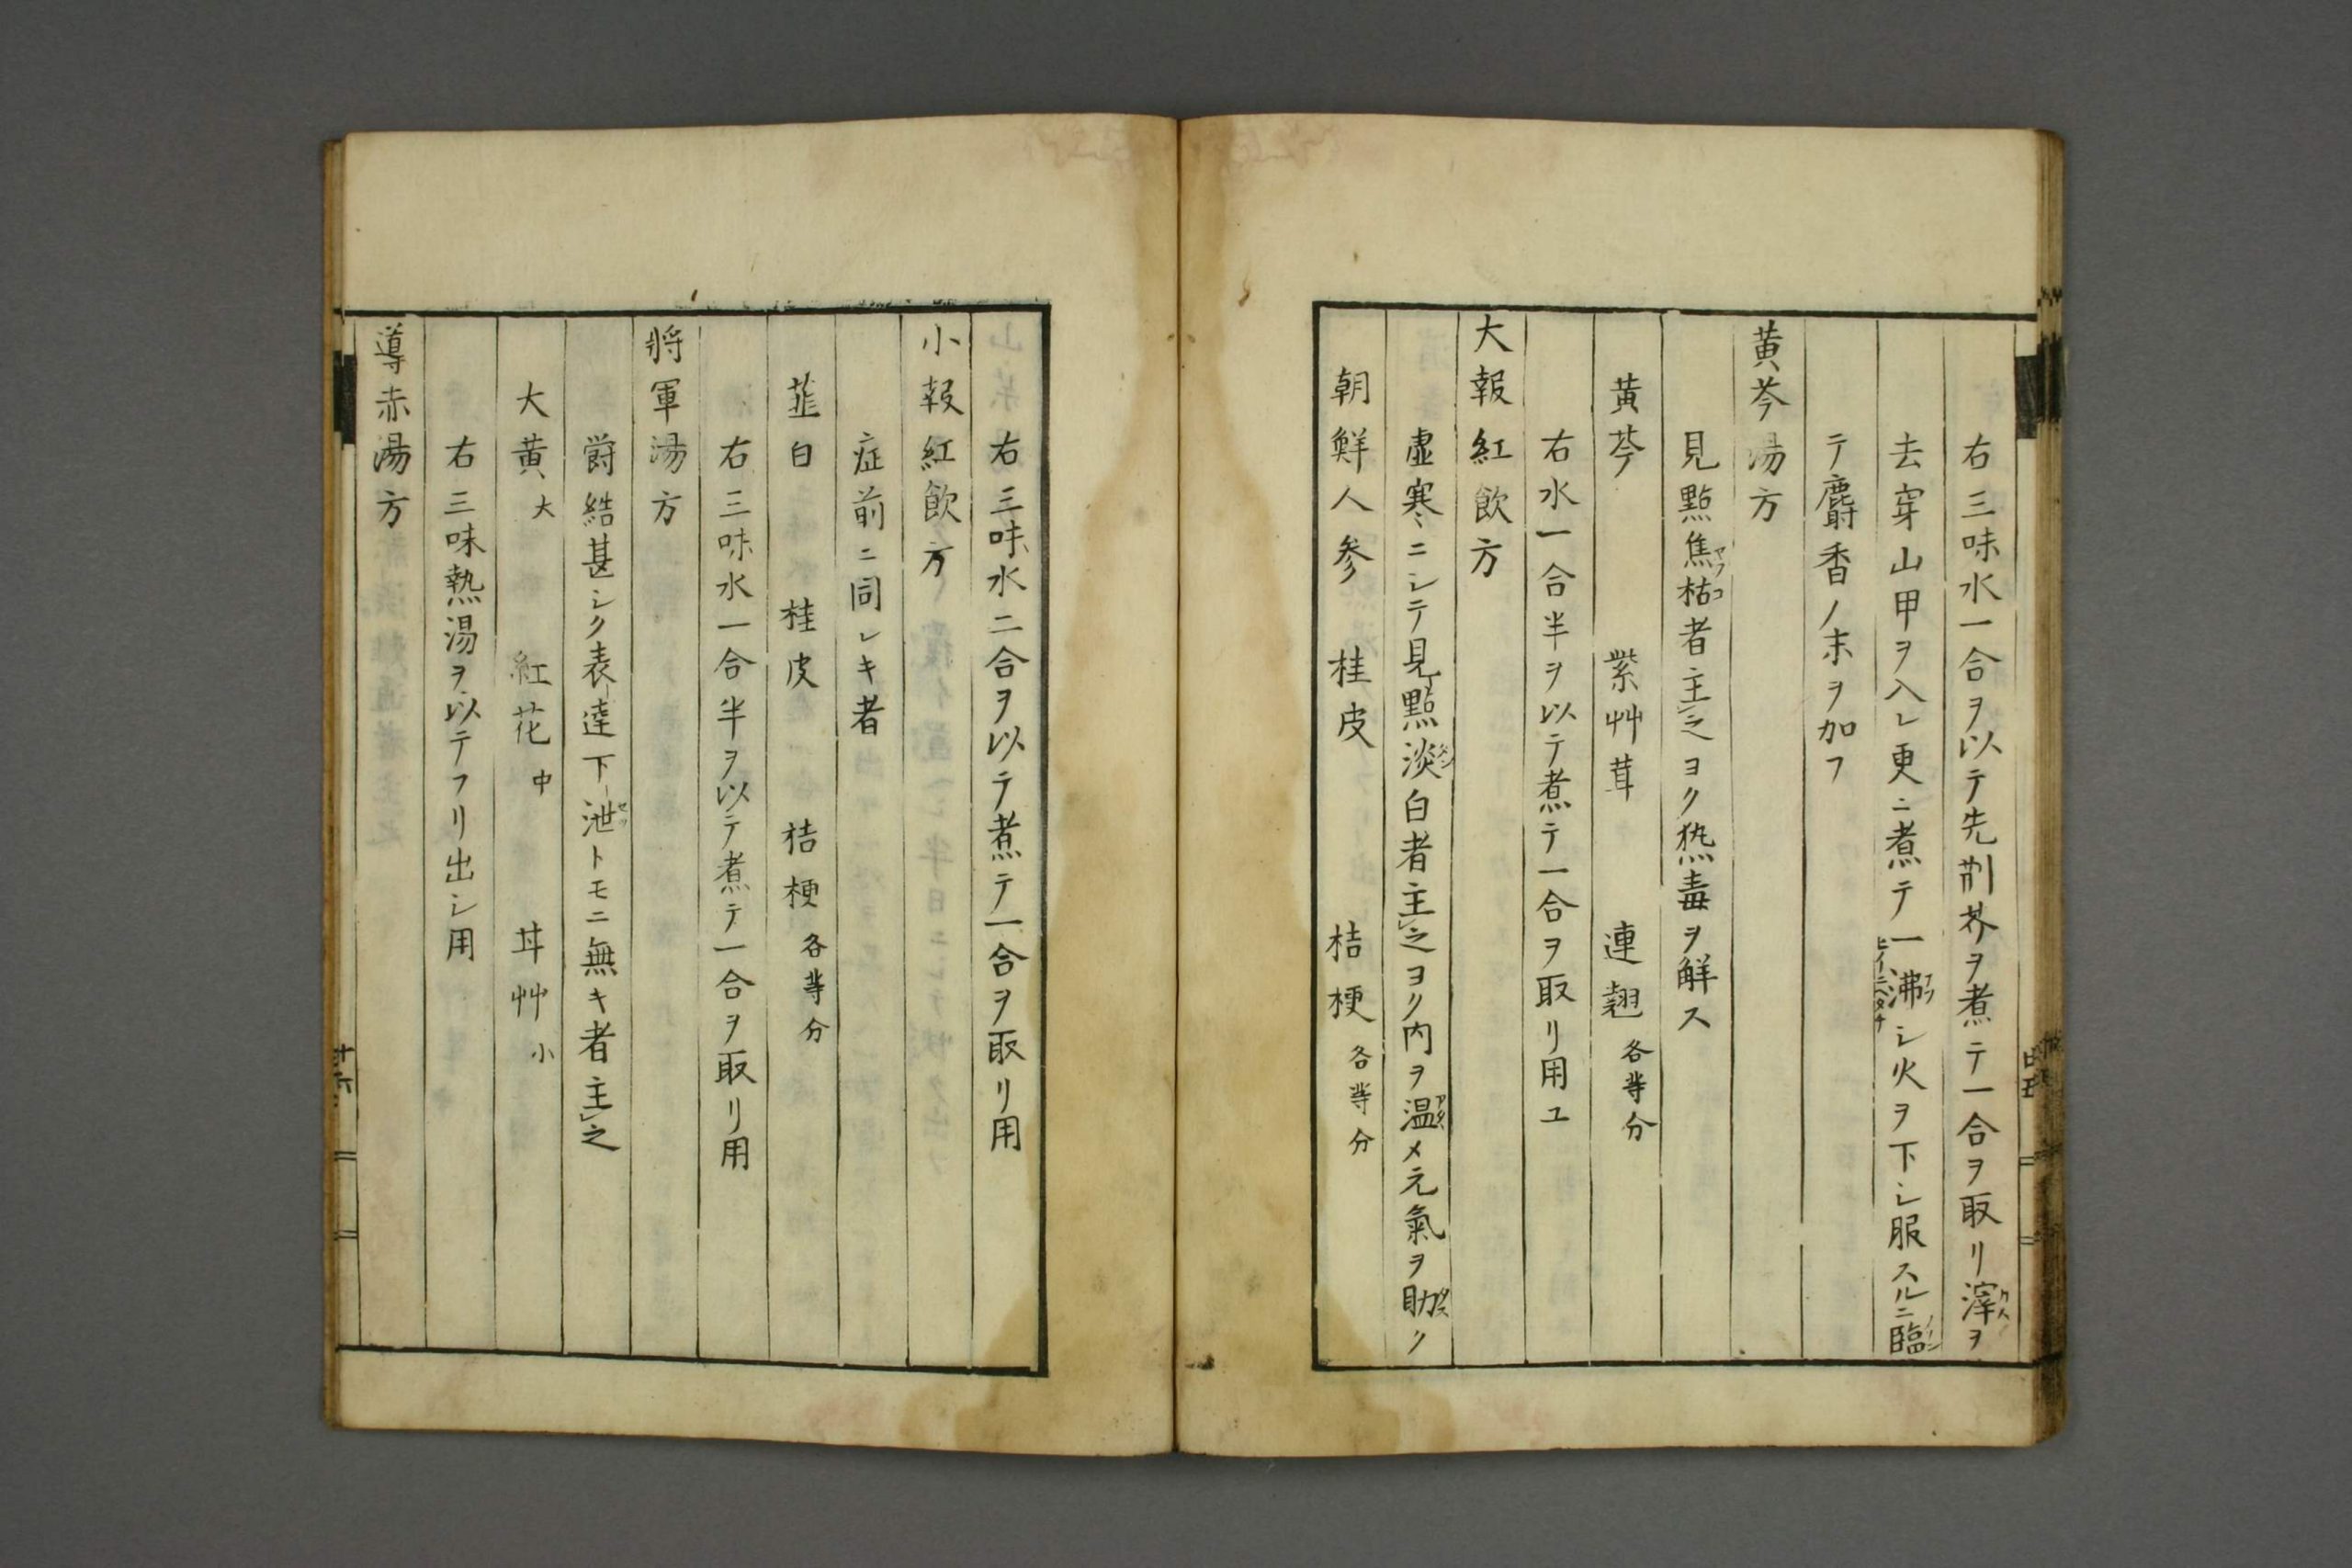 右三味水一合ヲ以テ先荊芥ヲ煮テ一合ヲ取リ滓ヲ
去穿山甲ヲ入レ更ニ煮テ一沸シ火ヲ下シ服スルニ臨
テ麝香ノ末ヲ加フ
黄芩湯方
見點焦枯者主之ヨク熱毒ヲ解ス
黄芩 紫艸茸 連翹 各等分
右水一合半ヲ以テ煮テ一合ヲ取リ用ユ
大報紅飲方
虚寒ニシテ見點淡白者主之ヨク内ヲ温メ元氣ヲ助ク
朝鮮人参 桂皮 桔梗 各等分
右三味水二合ヲ以テ煮テ一合ヲ取リ用
小報紅飲方
症前ニ同レキ者
薤白 桂皮 桔梗 各等分
右三味水一合半ヲ以テ煮テ一合ヲ取リ用
將軍湯方
欝結甚シク表達下泄トモニ無キ者主之
大黄 大 紅花 中 甘艸 小
右三味熱湯ヲ以テフリ出シ用
導赤湯方
十六